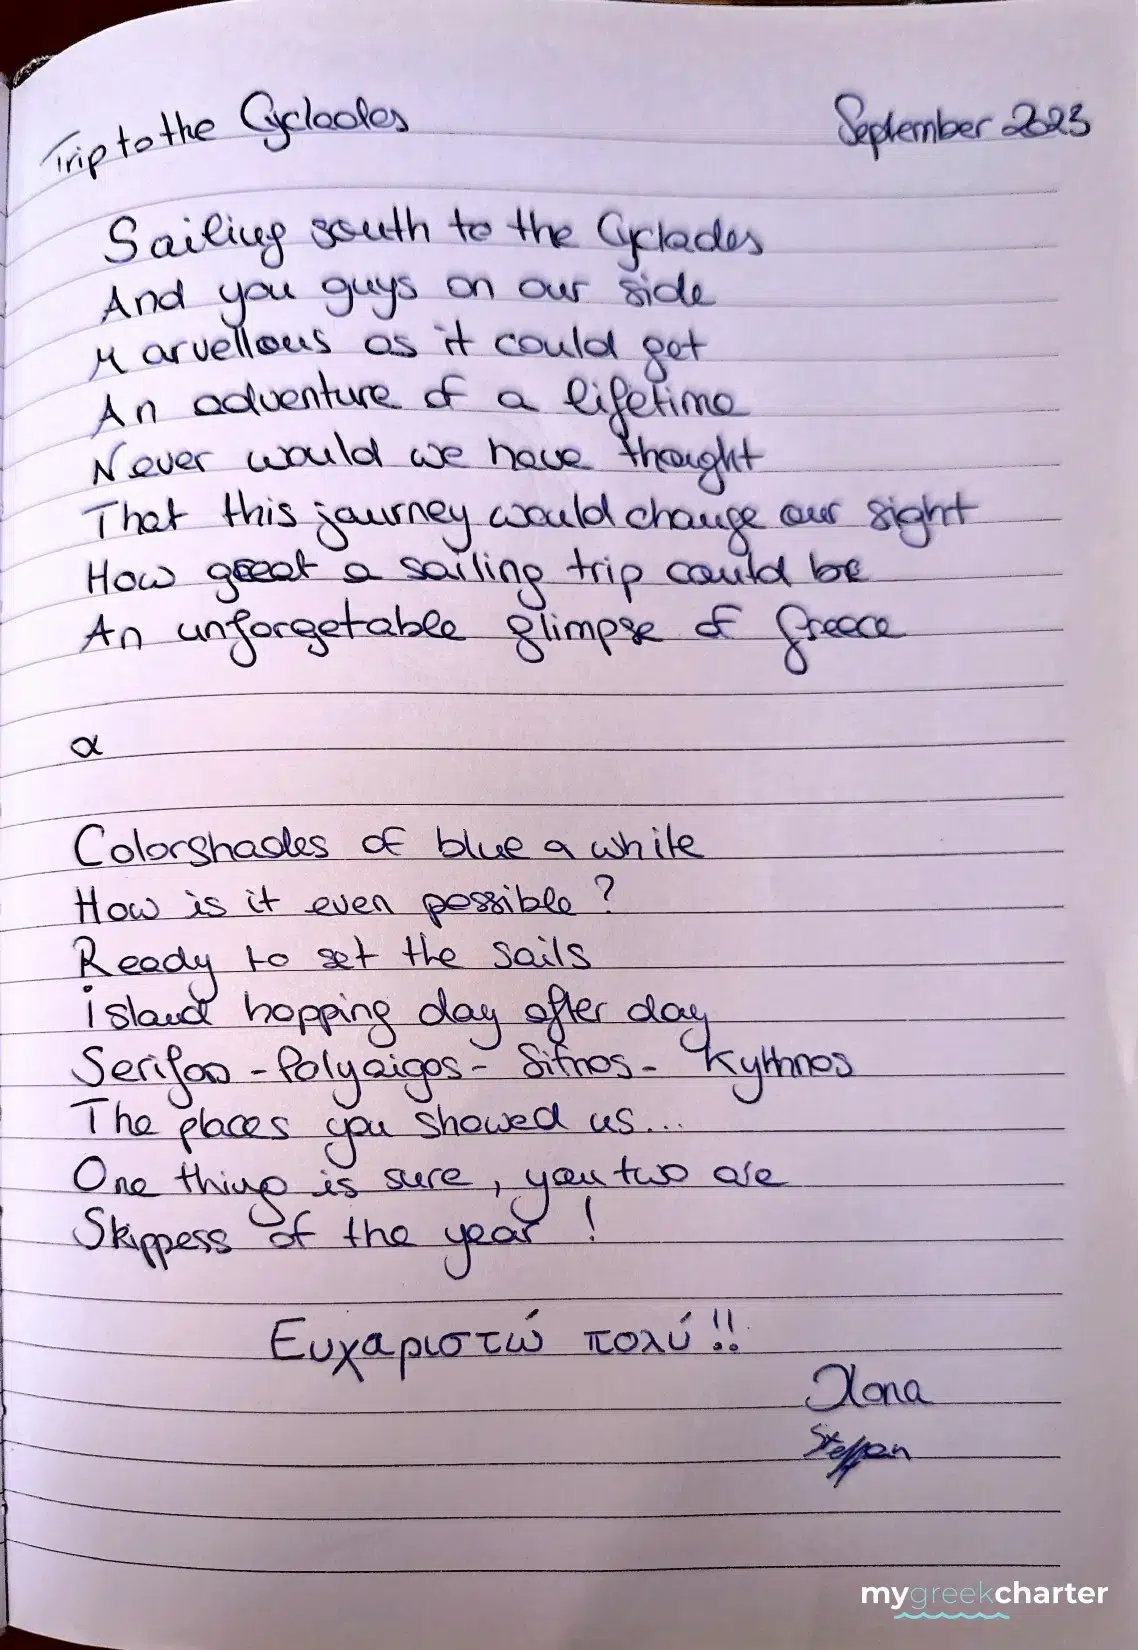 Trip to the Cyclades September 2023
Sailing south to the Cyclades
And you guys on our side
Marvellous as it could get
An adventure of a lifetime
Never would we have thought
That this journey would change our sight
How great a sailing trip could be
An unforgetable glimpse of Greece
α
Colorshades of blue a white
How is it even possible?
Ready to set the sails
island hopping day after day
Serifos - Polyaigos - Sifnos - Kythnos
The places you showed us...
One thing is sure, you two are
Skippess of the year!
Ευχαριστώ πολύ!!
Ilona
Steffen
mygreekcharter